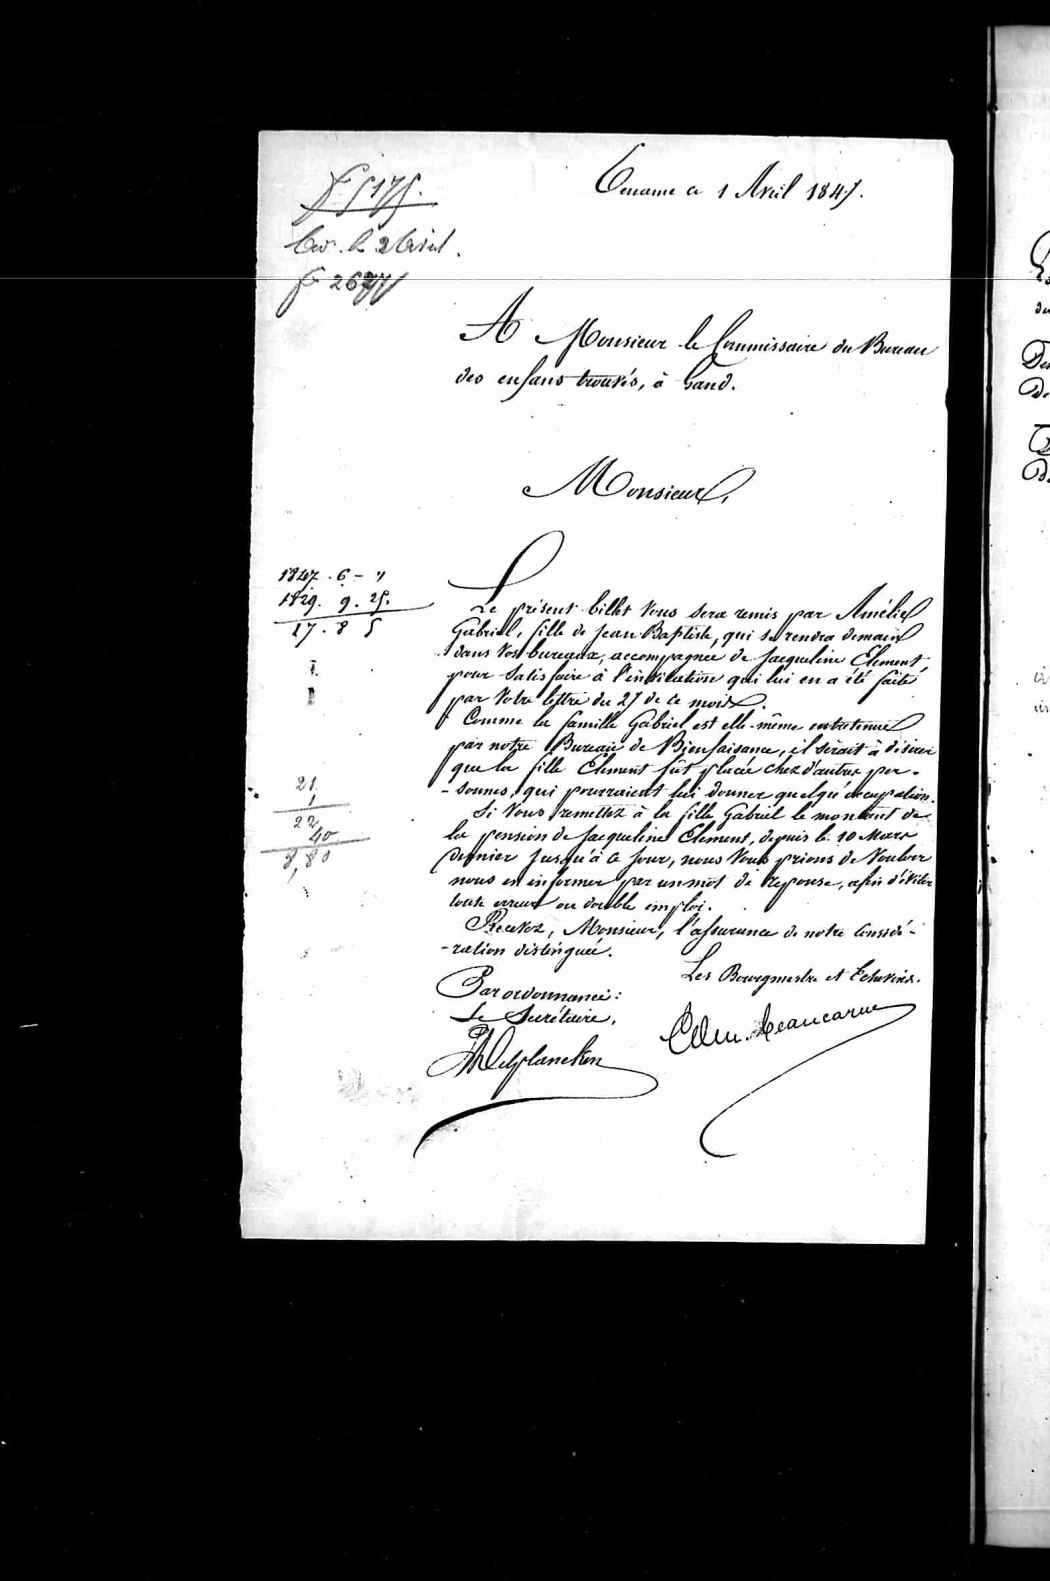 Ename ce 1 Avril 1847.
N° 5175.
le 2 Avril.
A Monsieur le Commissaire du Bureau
des enfans trouvés, à Gand.
Monsieur,
1847 . 6 - "
1829. 9. 25.
17. 8 5
Le présent billet vous sera remis par Amélie
Gabriel, fille de Jean Baptiste, qui se rendra demain
dans vos bureaux, accompagnée de Jacqueline Element,
pour satisfaire à l'invitation qui lui en a été faite
par votre lettre du 27 de ce mois.
Comme la famille Gabriel est elle-même entretenue
par notre Bureau de Bienfaisance, il serait à désirer
que la fille Element fût placée chez d'autres per-
-sonnes, qui pourraient lui donner quelqu'occupation.
21
1
22
40
8,80
Si vous remettez à la fille Gabriel le montant de
la pension de Jacqueline Element, depuis le 10 Mars
dernier jusqu'à ce jour, nous vous prions de vouloir
nous en informer par un mot de réponse, afin d'éviter
toute erreur ou double emploi.
Recevez, Monsieur, l'assurance de notre considé-
-ration distinguée.
Les Bourgmestre et Echevins.
Par ordonnance:
Le Secrétaire,
Beaucarne